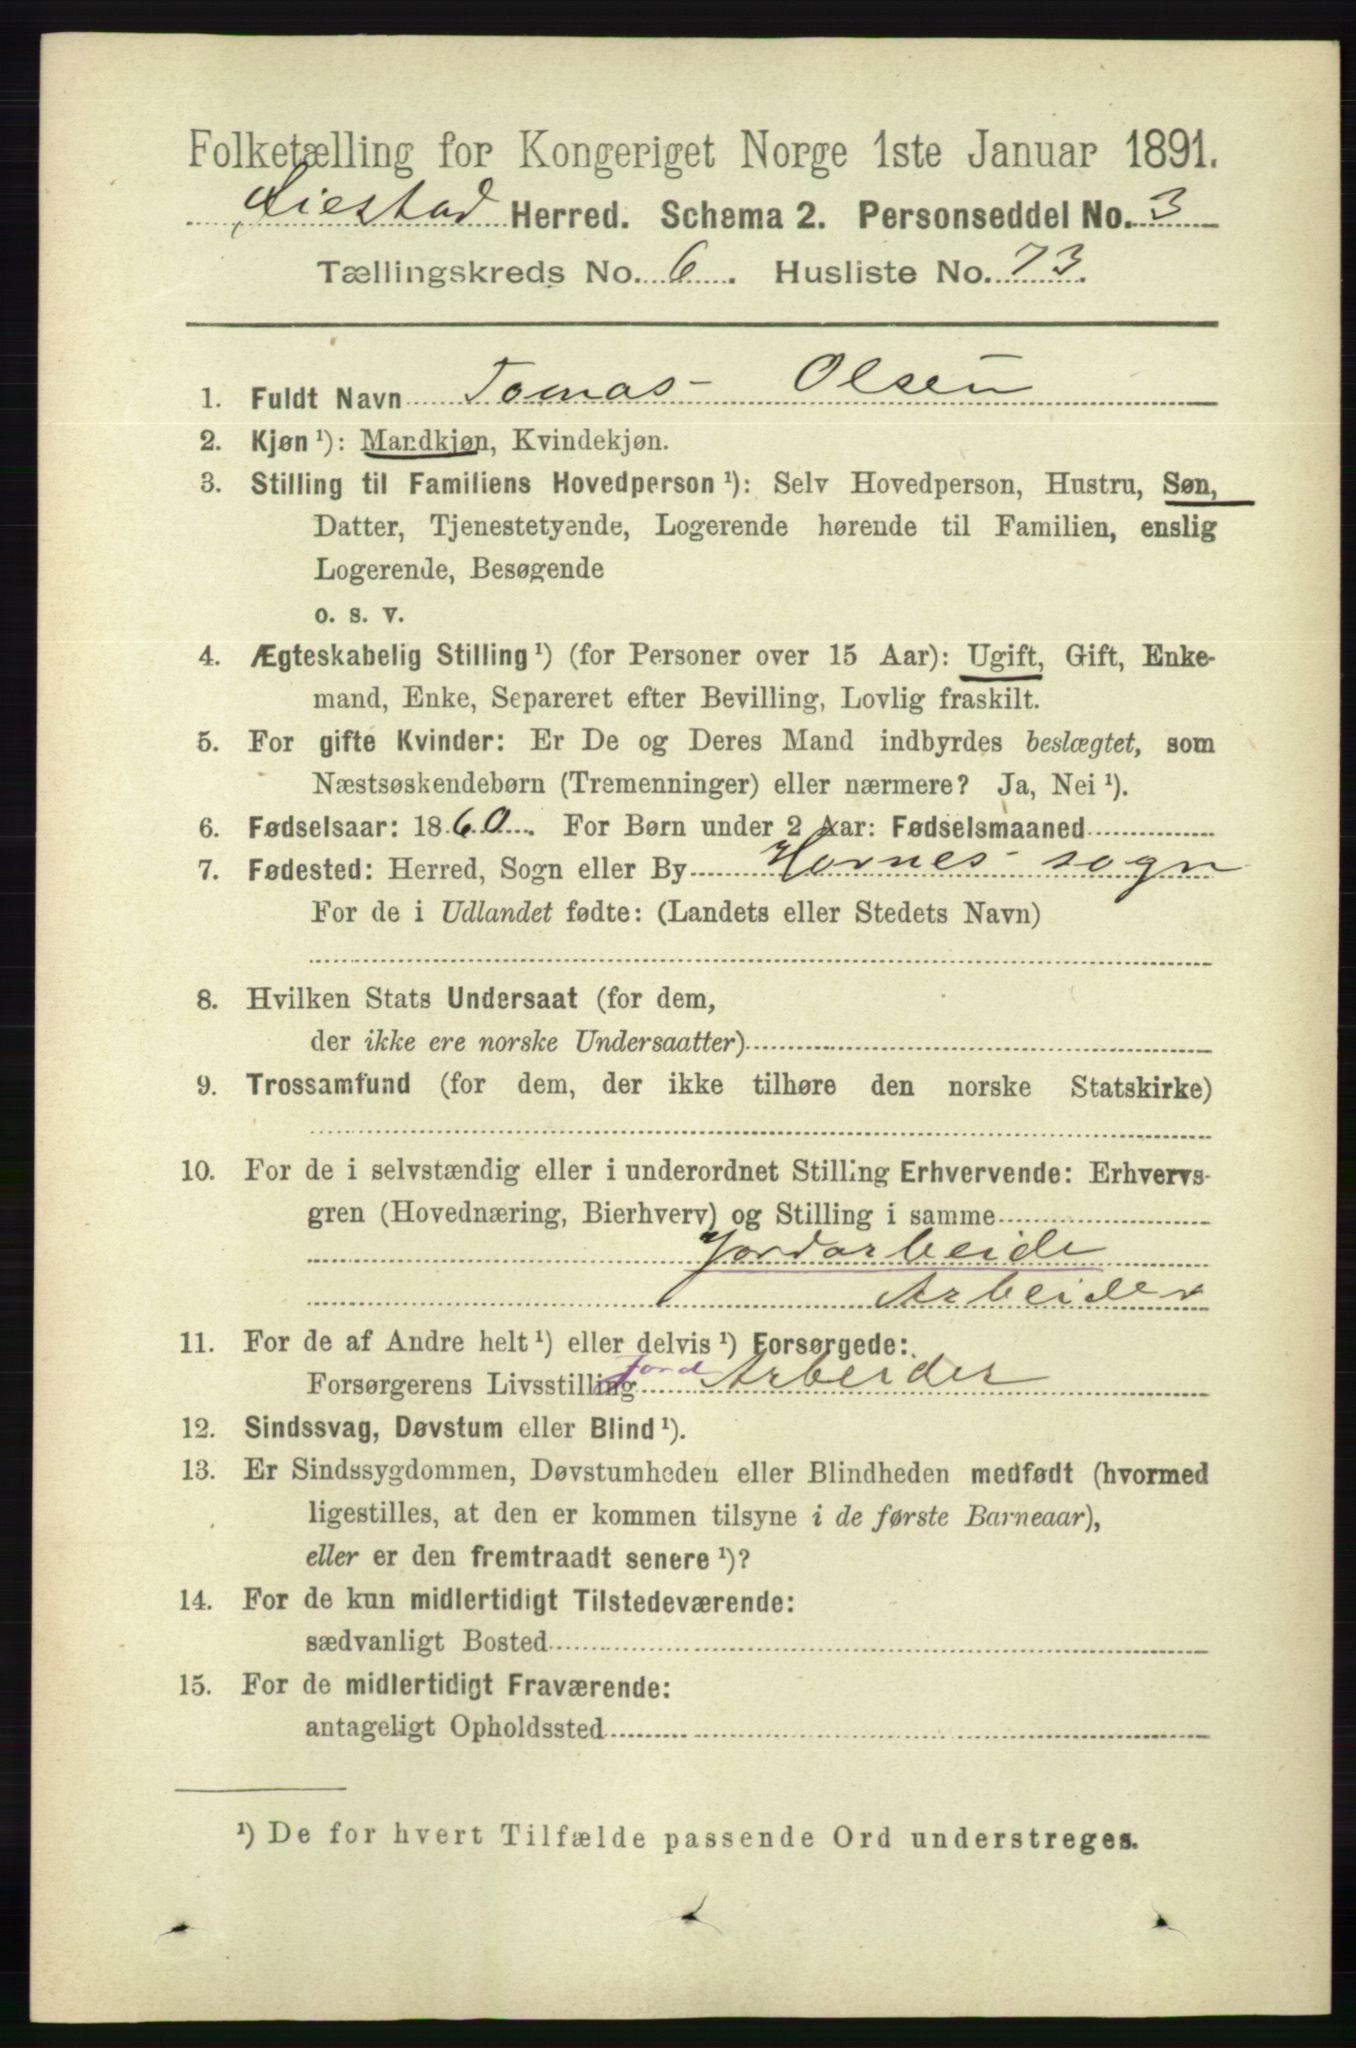 Folketælling for Kongeriget Norge 1ste Januar 1891.
Øiestad Herred. Schema 2. Personseddel No. 3
Tællingskreds No. 6. Husliste No. 73.
1. Fuldt Navn Tomas Olsen
2. Kjøn ¹): Mandkjøn, Kvindekjøn.
3. Stilling til Familiens Hovedperson ¹): Selv Hovedperson, Hustru, Søn,
Datter, Tjenestetyende, Logerende hørende til Familien, enslig
Logerende, Besøgende
o. s. v.
4. Ægteskabelig Stilling ¹) (for Personer over 15 Aar): Ugift, Gift, Enke-
mand, Enke, Separeret efter Bevilling, Lovlig fraskilt.
5. For gifte Kvinder: Er De og Deres Mand indbyrdes beslægtet, som
Næstsøskendebørn (Tremenninger) eller nærmere? Ja, Nei ¹).
6. Fødselsaar: 1860. For Børn under 2 Aar: Fødselsmaaned
7. Fødested: Herred, Sogn eller By Hornes sogn
For de i Udlandet fødte: (Landets eller Stedets Navn)
8. Hvilken Stats Undersaat (for dem,
der ikke ere norske Undersaatter)
9. Trossamfund (for dem, der ikke tilhøre den norske Statskirke)
10. For de i selvstændig eller i underordnet Stilling Erhvervende: Erhvervs-
gren (Hovednæring, Bierhverv) og Stilling i samme
Jordarbeide
Arbeider
11. For de af Andre helt ¹) eller delvis ¹) Forsørgede:
Forsørgerens Livsstilling Jord Arbeider
12. Sindssvag, Døvstum eller Blind ¹).
13. Er Sindssygdommen, Døvstumheden eller Blindheden medfødt (hvormed
ligestilles, at den er kommen tilsyne i de første Barneaar),
eller er den fremtraadt senere ¹)?
14. For de kun midlertidigt Tilstedeværende:
sædvanligt Bosted
15. For de midlertidigt Fraværende:
antageligt Opholdssted
¹) De for hvert Tilfælde passende Ord understreges.